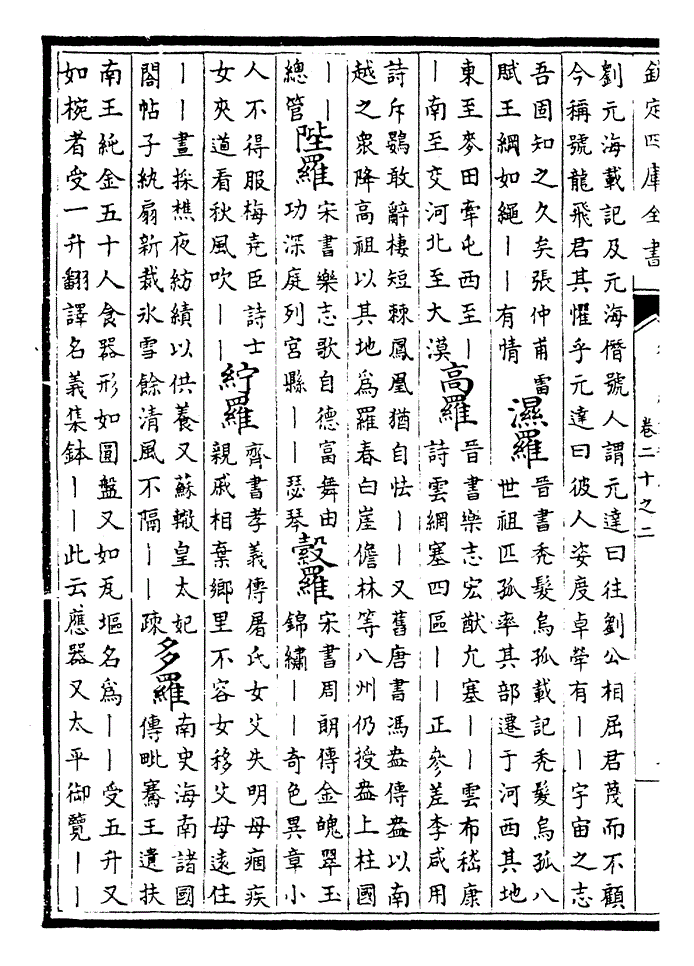 欽定四庫全書
卷二十之二
劉元海載記及元海僭號人謂元達曰往劉公相屈君蔑而不顧
今稱號龍飛君其懼乎元達曰彼人姿度卓犖有｜｜宇宙之志
吾固知之久矣張仲甫雷
賦王綱如繩｜｜有情
濕羅
晉書禿髮烏孤載記禿髮烏孤八
世祖匹孤率其部遷于河西其地
東至麥田牽屯西至｜
｜南至交河北至大漠
高羅
晉書樂志宏猷允塞｜｜雲布嵇康
詩雲網塞四區｜｜正參差李咸用
詩斥鷃敢辭棲短棘鳳凰猶自怯｜｜又舊唐書馮盎傳盎以南
越之衆降高祖以其地爲羅春白崖儋林等八州仍授盎上柱國
｜｜
總管
陛羅
宋書樂志歌自德富舞由
功深庭列宮縣｜｜瑟琴
縠羅
宋書周朗傳金魄翠玉
錦繡｜｜奇色異章小
人不得服梅堯臣詩士
女夾道看秋風吹｜｜
紵羅
齊書孝義傳屠氏女父失明母痼疾
親戚相棄鄉里不容女移父母遠住
｜｜晝採樵夜紡績以供養又蘇轍皇太妃
閣帖子紈扇新裁氷雪餘清風不隔｜｜疎
多羅
南史海南諸國
傳毗騫王遺扶
南王純金五十人食器形如圓盤又如瓦塸名爲｜｜受五升又
如椀者受一升翻譯名義集鉢｜｜此云應器又太平御覽｜｜